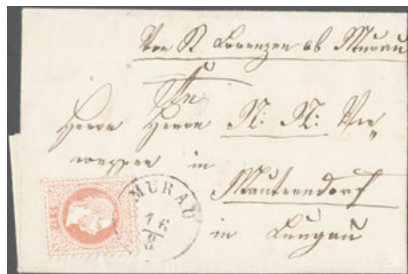 Von St Lorenzen ob Murau
An
Herrn Herrn N: N: Ver-
in
Mauterndorf
in Lungau
MURAU
16
2